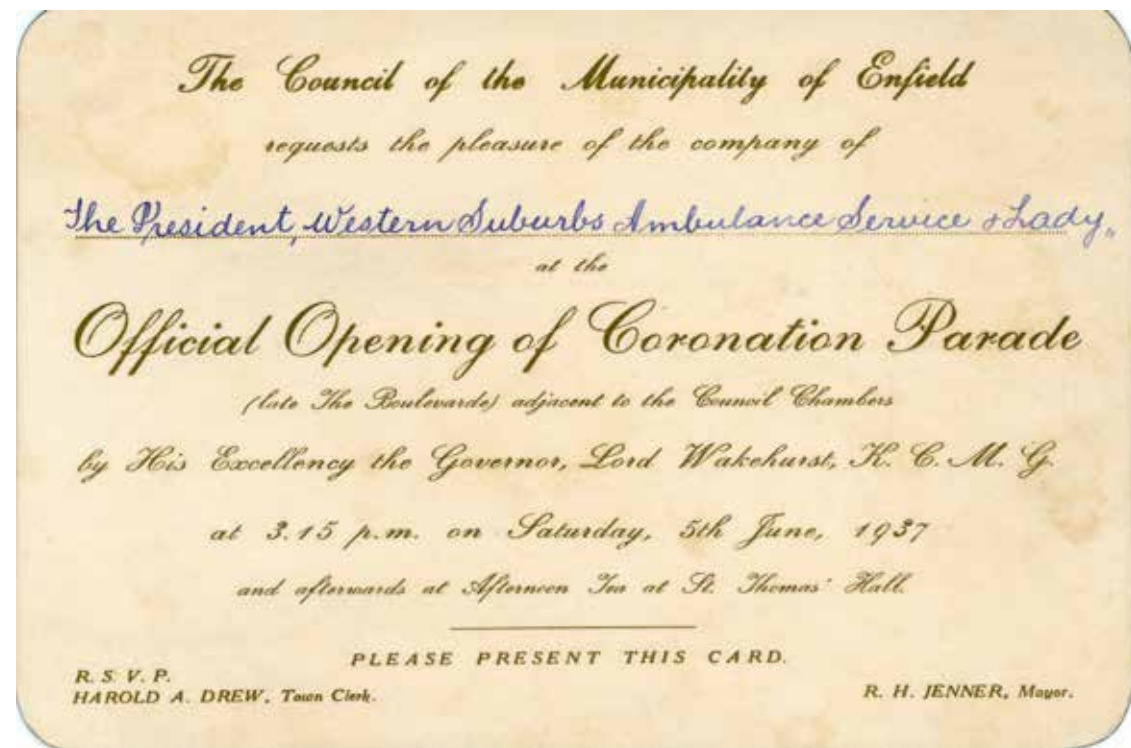 The Council of the Municipality of Enfield
requests the pleasure of the company of
The President, Western Suburbs Ambulance Service & Lady,,
at the
Official Opening of Coronation Parade
(late The Boulevarde) adjacent to the Council Chambers
by His Excellency the Governor, Lord Wakehurst, K. C. M. G.
at 3.15 p.m. on Saturday, 5th June, 1937
and afterwards at Afternoon Tea at St. Thomas' Hall.
PLEASE PRESENT THIS CARD.
R. S. V. P.
HAROLD A. DREW, Town Clerk.
R. H. JENNER, Mayor.